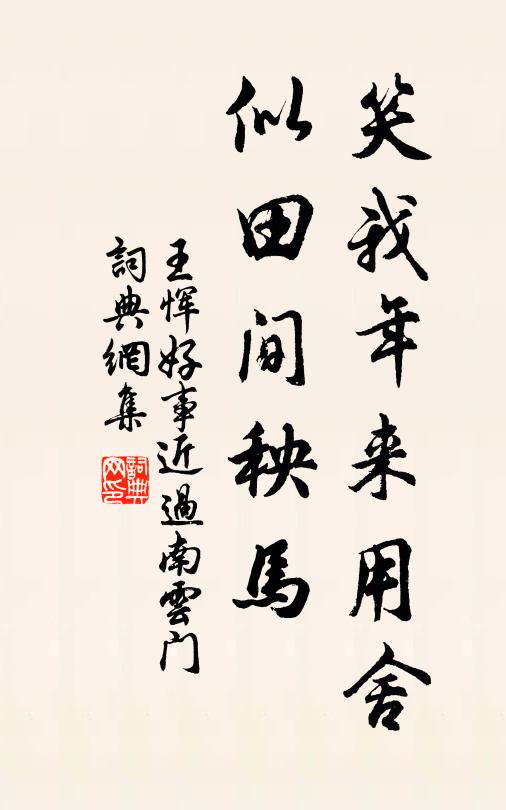 笑我年来用舍
似田间秧馬
王恽好事近過南雲门
詞典網集
詞典网印